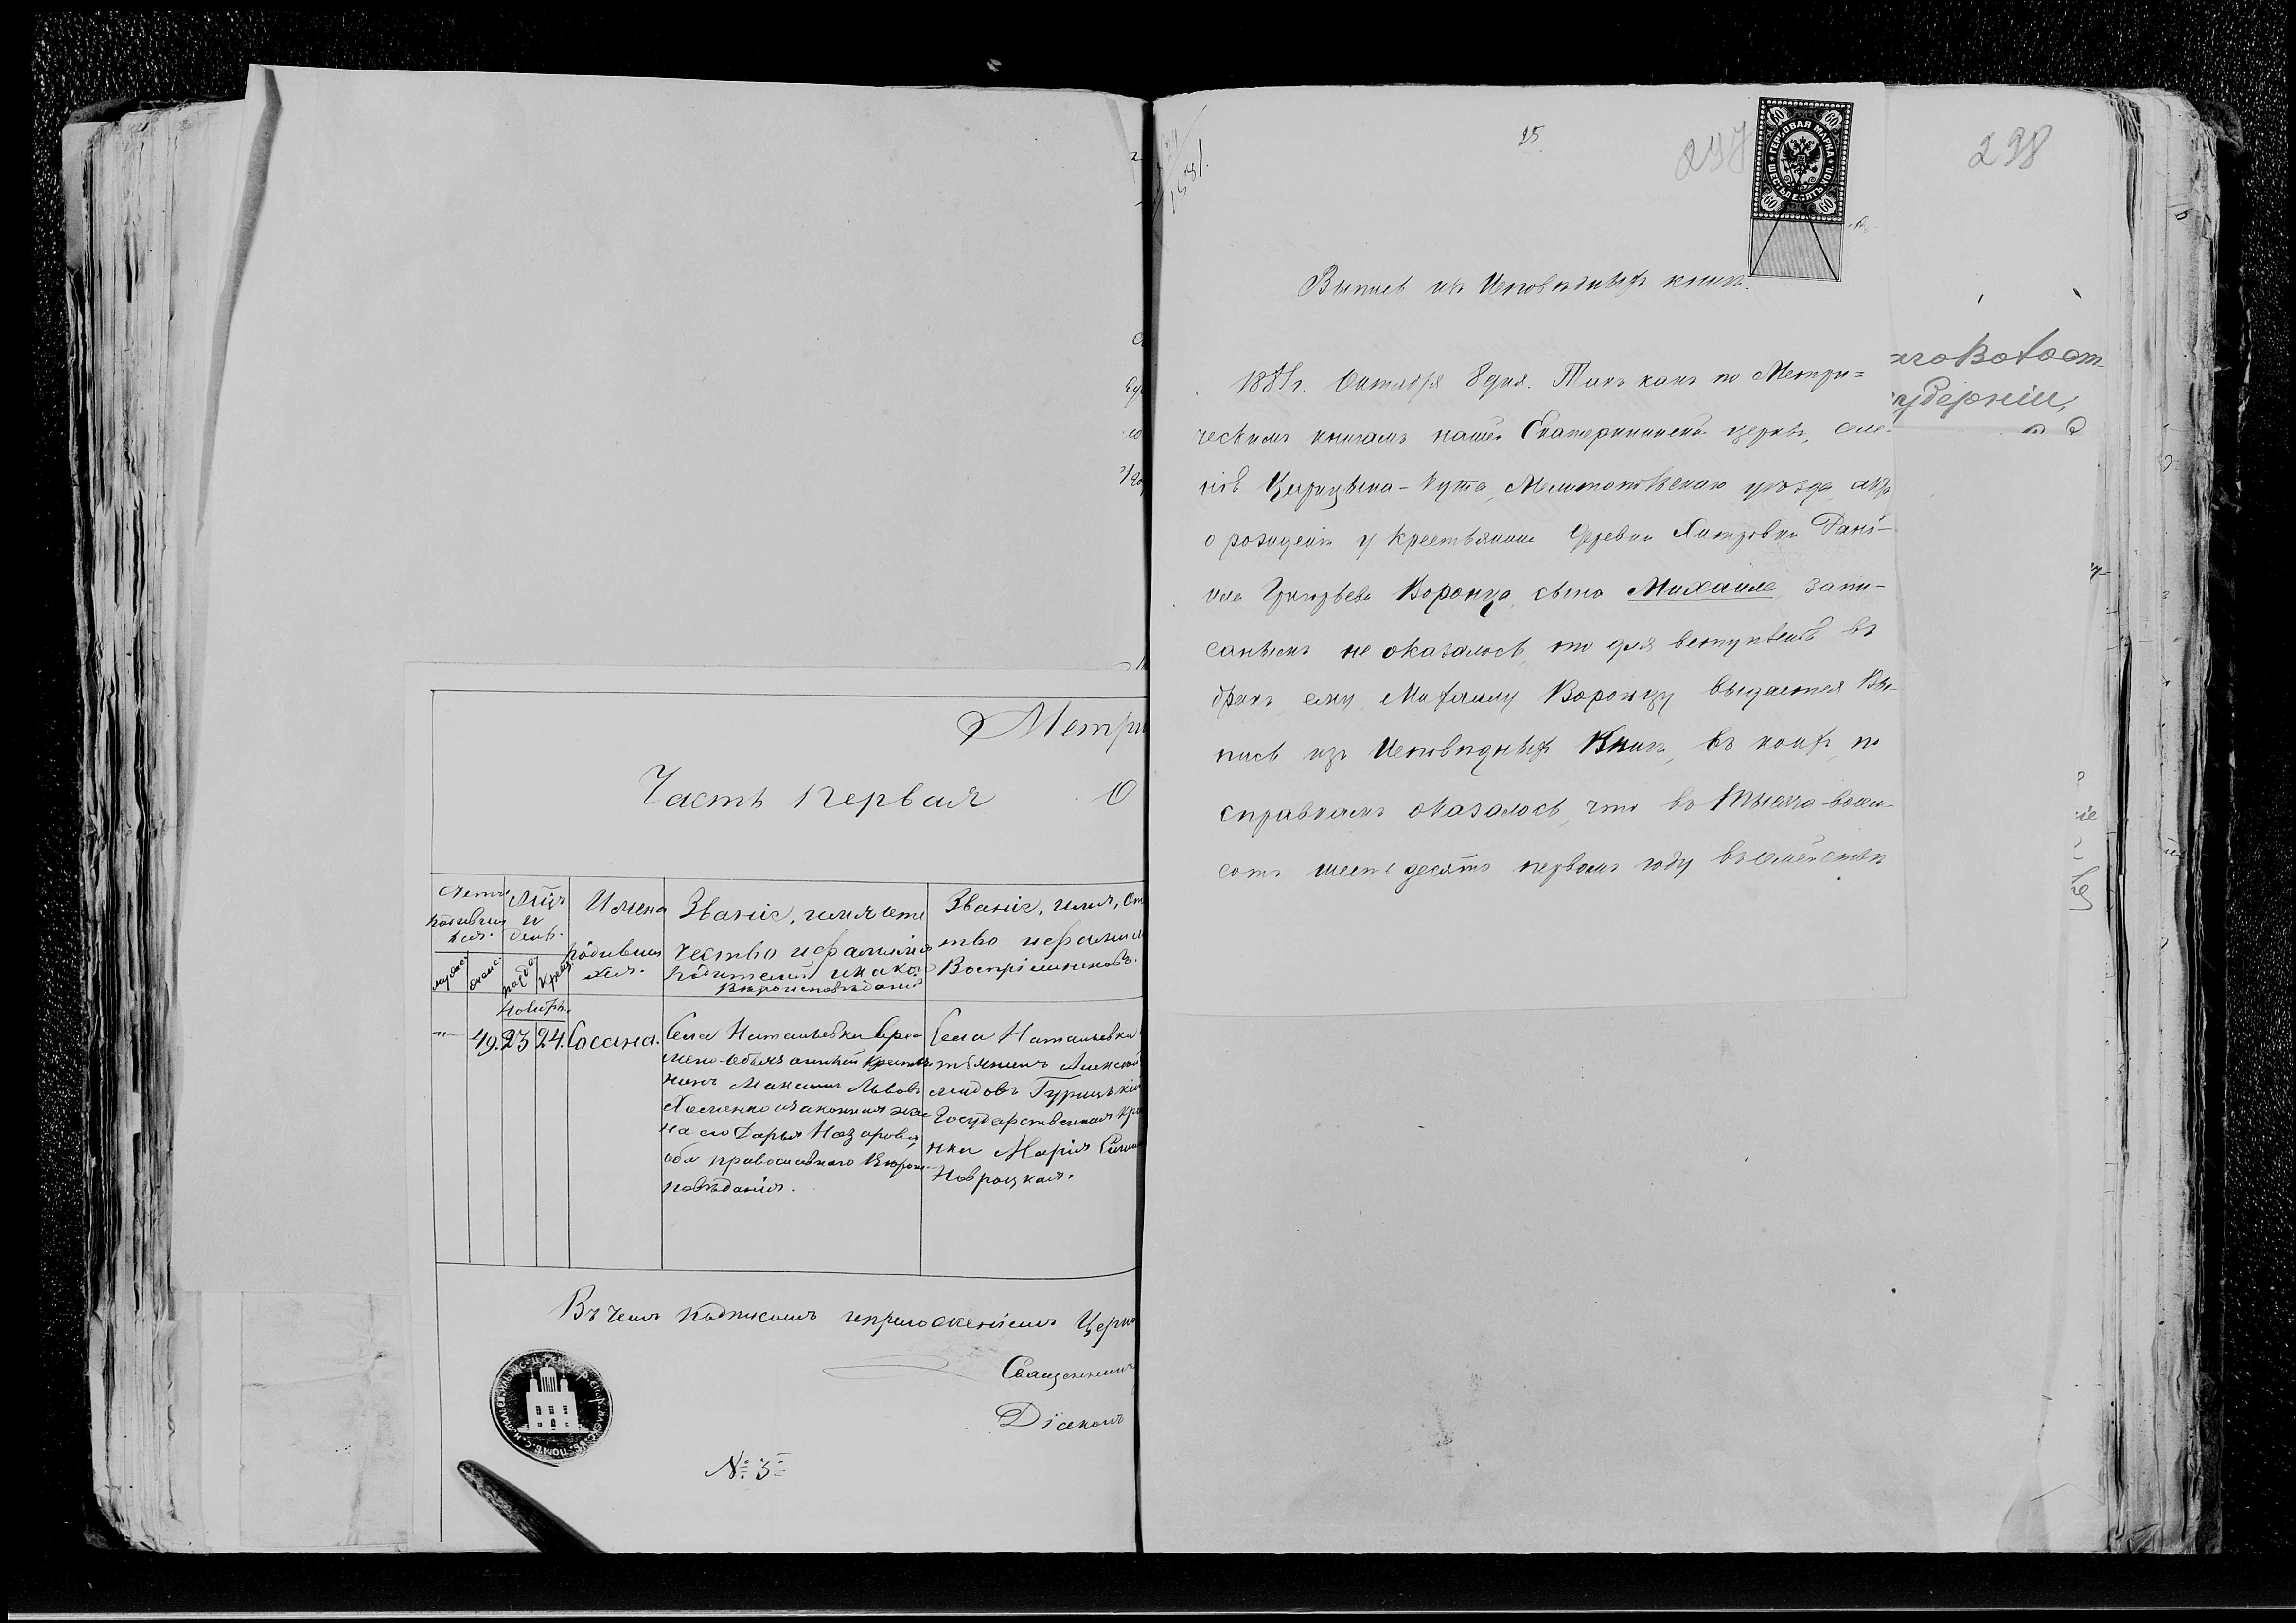 Метри
Часть первая О
Счетъ родившихся.
Мѣс. и день.
Имена родившихся.
Званіе, имя, отчество и фамилія родителей и какого вѣроисповѣданія
Званіе, имя, от
тво и фамилі
Воспріемниковъ.
Ноябрь.
49. 23 24. Сосана.
Села Натальевки Вре-
менно-обязанный крестья-
нинъ Максимъ Львовъ
Хоменко и законная же-
на его Дарья Назарова,
оба православнаго вѣроис-
повѣданія.
Села Натальевки
стьянинъ Алексѣй
мидовъ Гурицькій
Государственная кре
нка Марія
Навроцкая.
Въ чемъ подписомъ и приложеніемъ Церко
Священникъ
Діаконъ
№ 3й
1881.
25
297
298
ГЕРБОВАЯ МАРКА
ШЕСТЬДЕСЯТЪ КОП.
60 60
60 60
Выпись изъ Исповѣдныхъ книгъ.
1881 г. Октября 8 дня. Такъ какъ по Метри=
ческимъ книгамъ нашей Екатерининской церкви, селе-
нія Царицына-Кута, Мелитопольскаго уѣзда, актъ
о рожденіи у крестьянина деревни Хитровки Дані-
ила Григорьева Воронца, сына Михаила, запи-
саннымъ не оказалось, то для вступленія въ
бракъ, ему, Михаилу Воронцу выдается Вы-
пись изъ Исповѣдныхъ Книгъ, въ коихъ, по
справкамъ оказалось, что въ тысяча восем-
сотъ шестьдесятъ первомъ году въ семействѣ
аго Волост
губерніи,